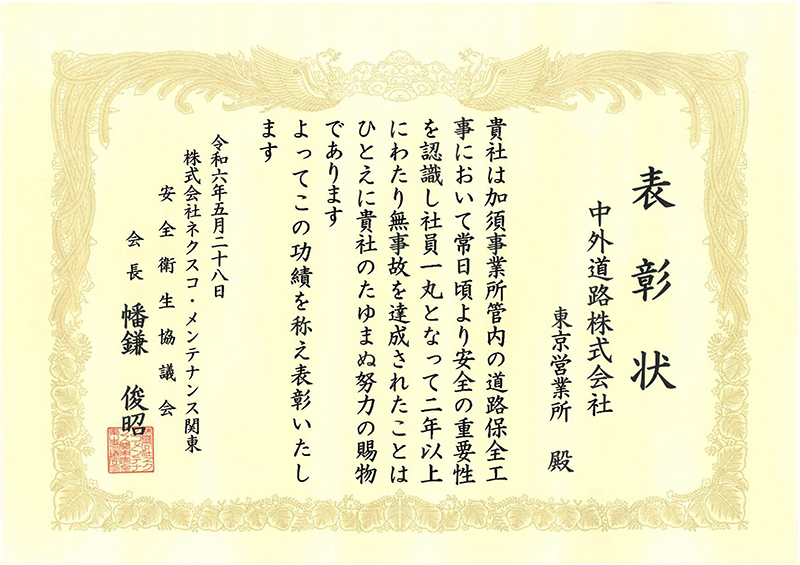 表彰状
中外道路株式会社
東京営業所 殿
貴社は加須事業所管内の道路保全工
事において常日頃より安全の重要性
を認識し社員一丸となって二年以上
にわたり無事故を達成されたことは
ひとえに貴社のたゆまぬ努力の賜物
であります
よってこの功績を称え表彰いたし
ます
令和六年五月二十八日
株式会社ネクスコ・メンテナンス関東
安全衛生協議会
会長 幡鎌 俊昭